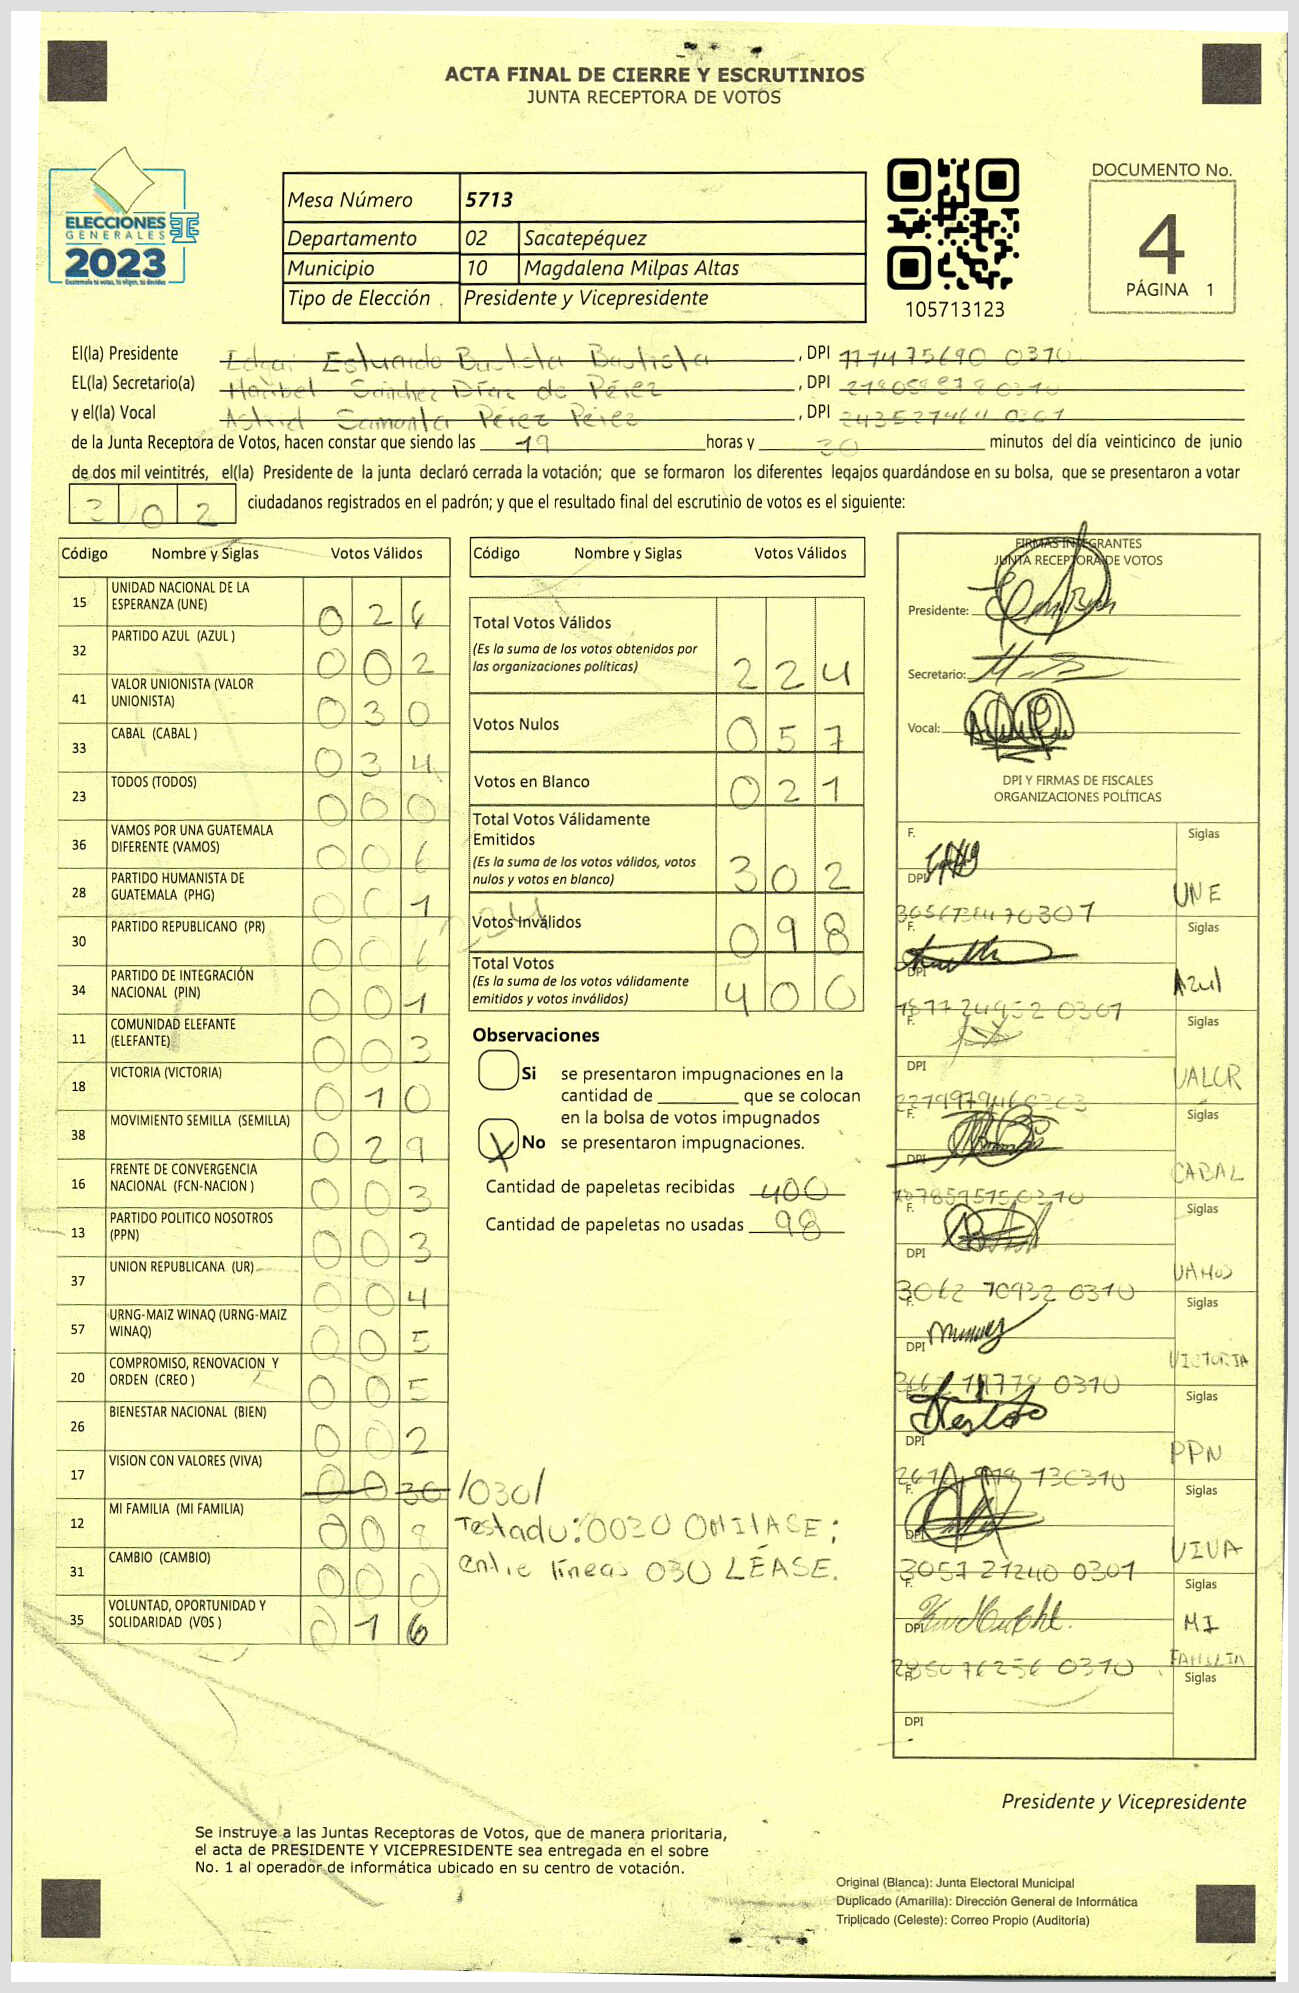 ACTA FINAL DE CIERRE Y ESCRUTINIOS
JUNTA RECEPTORA DE VOTOS
ELECCIONES
GENERALES
2023
Mesa Número 5713
Departamento 02 Sacatepéquez
Municipio 10 Magdalena Milpas Altas
Tipo de Elección Presidente y Vicepresidente
105713123
DOCUMENTO No.
4
PÁGINA 1
El(la) Presidente Edgar Estuardo Bautista Bautista , DPI
EL(la) Secretario(a) Maribel Sánchez Díaz de Pérez , DPI
y el(la) Vocal Astrid Samanta Pérez Pérez , DPI
de la Junta Receptora de Votos, hacen constar que siendo las 19 horas y 30 minutos del día veinticinco de junio
de dos mil veintitrés, el(la) Presidente de la junta declaró cerrada la votación; que se formaron los diferentes legajos guardándose en su bolsa, que se presentaron a votar
302 ciudadanos registrados en el padrón; y que el resultado final del escrutinio de votos es el siguiente:
Código Nombre y Siglas Votos Válidos
15 UNIDAD NACIONAL DE LA ESPERANZA (UNE) 026
32 PARTIDO AZUL (AZUL ) 002
41 VALOR UNIONISTA (VALOR UNIONISTA) 030
33 CABAL (CABAL ) 034
23 TODOS (TODOS) 000
36 VAMOS POR UNA GUATEMALA DIFERENTE (VAMOS) 006
28 PARTIDO HUMANISTA DE GUATEMALA (PHG) 001
30 PARTIDO REPUBLICANO (PR) 006
34 PARTIDO DE INTEGRACIÓN NACIONAL (PIN) 001
11 COMUNIDAD ELEFANTE (ELEFANTE) 003
18 VICTORIA (VICTORIA) 010
38 MOVIMIENTO SEMILLA (SEMILLA) 029
16 FRENTE DE CONVERGENCIA NACIONAL (FCN-NACION ) 003
13 PARTIDO POLITICO NOSOTROS (PPN) 003
37 UNION REPUBLICANA (UR) 004
57 URNG-MAIZ WINAQ (URNG-MAIZ WINAQ) 005
20 COMPROMISO, RENOVACION Y ORDEN (CREO ) 005
26 BIENESTAR NACIONAL (BIEN) 002
17 VISION CON VALORES (VIVA) 0030 /030/
12 MI FAMILIA (MI FAMILIA) 008
31 CAMBIO (CAMBIO) 000
35 VOLUNTAD, OPORTUNIDAD Y SOLIDARIDAD (VOS ) 016
Testado: 0030 OMITASE;
entre líneas 030 LÉASE.
Código Nombre y Siglas Votos Válidos
Total Votos Válidos 224
(Es la suma de los votos obtenidos por
las organizaciones políticas)
Votos Nulos 057
Votos en Blanco 021
Total Votos Válidamente
Emitidos
(Es la suma de los votos válidos, votos
nulos y votos en blanco) 302
Votos Inválidos 098
Total Votos
(Es la suma de los votos válidamente
emitidos y votos inválidos) 400
Observaciones
Si se presentaron impugnaciones en la
cantidad de ________ que se colocan
en la bolsa de votos impugnados
X No se presentaron impugnaciones.
Cantidad de papeletas recibidas 400
Cantidad de papeletas no usadas 98
FIRMAS INTEGRANTES
JUNTA RECEPTORA DE VOTOS
Presidente:
Secretario:
Vocal:
DPI Y FIRMAS DE FISCALES
ORGANIZACIONES POLÍTICAS
F. Siglas
DPI UNE
F. Siglas
DPI Azul
F. Siglas
DPI VALOR
F. Siglas
DPI CABAL
F. Siglas
DPI VAMOS
F. Siglas
DPI VICTORIA
F. Siglas
DPI PPN
F. Siglas
DPI VIVA
F. Siglas
DPI MI
FAMILIA
F. Siglas
DPI
Presidente y Vicepresidente
Se instruye a las Juntas Receptoras de Votos, que de manera prioritaria,
el acta de PRESIDENTE Y VICEPRESIDENTE sea entregada en el sobre
No. 1 al operador de informática ubicado en su centro de votación.
Original (Blanca): Junta Electoral Municipal
Duplicado (Amarilla): Dirección General de Informática
Triplicado (Celeste): Correo Propio (Auditoría)